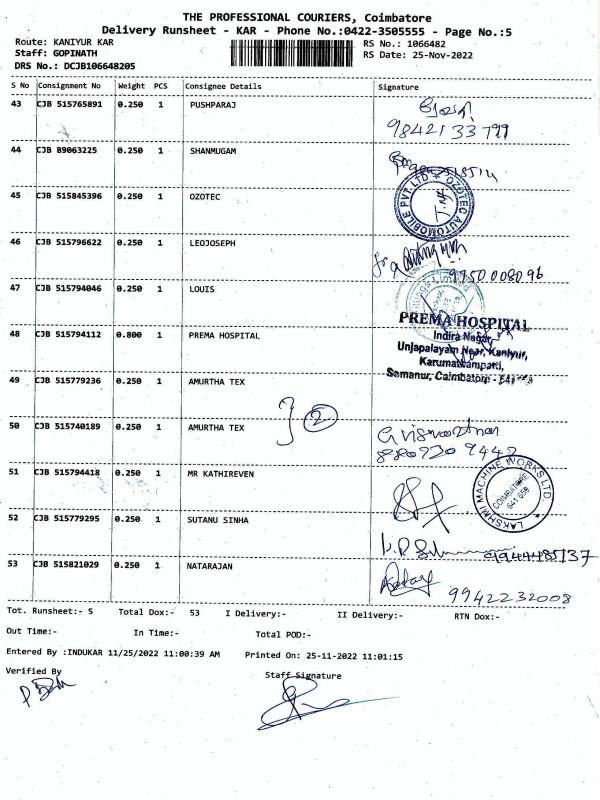 THE PROFESSIONAL COURIERS, Coimbatore
Delivery Runsheet - KAR - Phone No.:0422-3505555 - Page No.:5
Route: KANIYUR KAR
Staff: GOPINATH
DRS No.: DCJB106648205
RS No.: 1066482
RS Date: 25-Nov-2022
S No Consignment No Weight PCS Consignee Details Signature
43 CJB 515765891 0.250 1 PUSHPARAJ
44 CJB 89063225 0.250 1 SHANMUGAM
45 CJB 515845396 0.250 1 OZOTEC
OZOTEC AUTOMOBILE PVT LTD
46 CJB 515796622 0.250 1 LEOJOSEPH
9750008096
47 CJB 515794046 0.250 1 LOUIS
48 CJB 515794112 0.800 1 PREMA HOSPITAL
PREMA HOSPITAL
Indira Nagar,
Unjapalayam Near, Kaniyur,
Karumathampatti,
Samanur, Coimbatore -
49 CJB 515779236 0.250 1 AMURTHA TEX
2
50 CJB 515740189 0.250 1 AMURTHA TEX
51 CJB 515794418 0.250 1 MR KATHIREVEN
LAKSHMI MACHINE WORKS LTD.
COIMBATORE
641 659
52 CJB 515779295 0.250 1 SUTANU SINHA
53 CJB 515821029 0.250 1 NATARAJAN
9942232008
Tot. Runsheet:- 5 Total Dox:- 53 I Delivery:- II Delivery:- RTN Dox:-
Out Time:- In Time:- Total POD:-
Entered By :INDUKAR 11/25/2022 11:00:39 AM Printed On: 25-11-2022 11:01:15
Verified By
Staff Signature